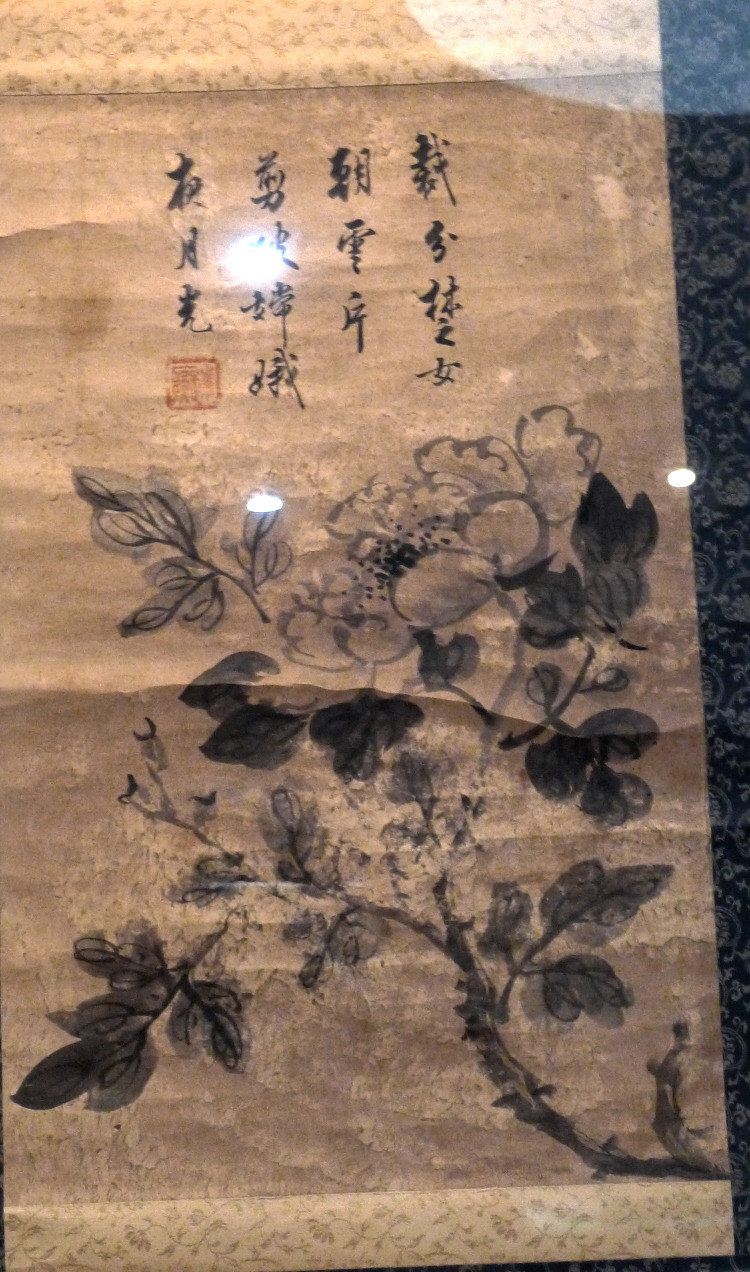 裁分楚女
朝雲片
剪破嫦娥
夜月光